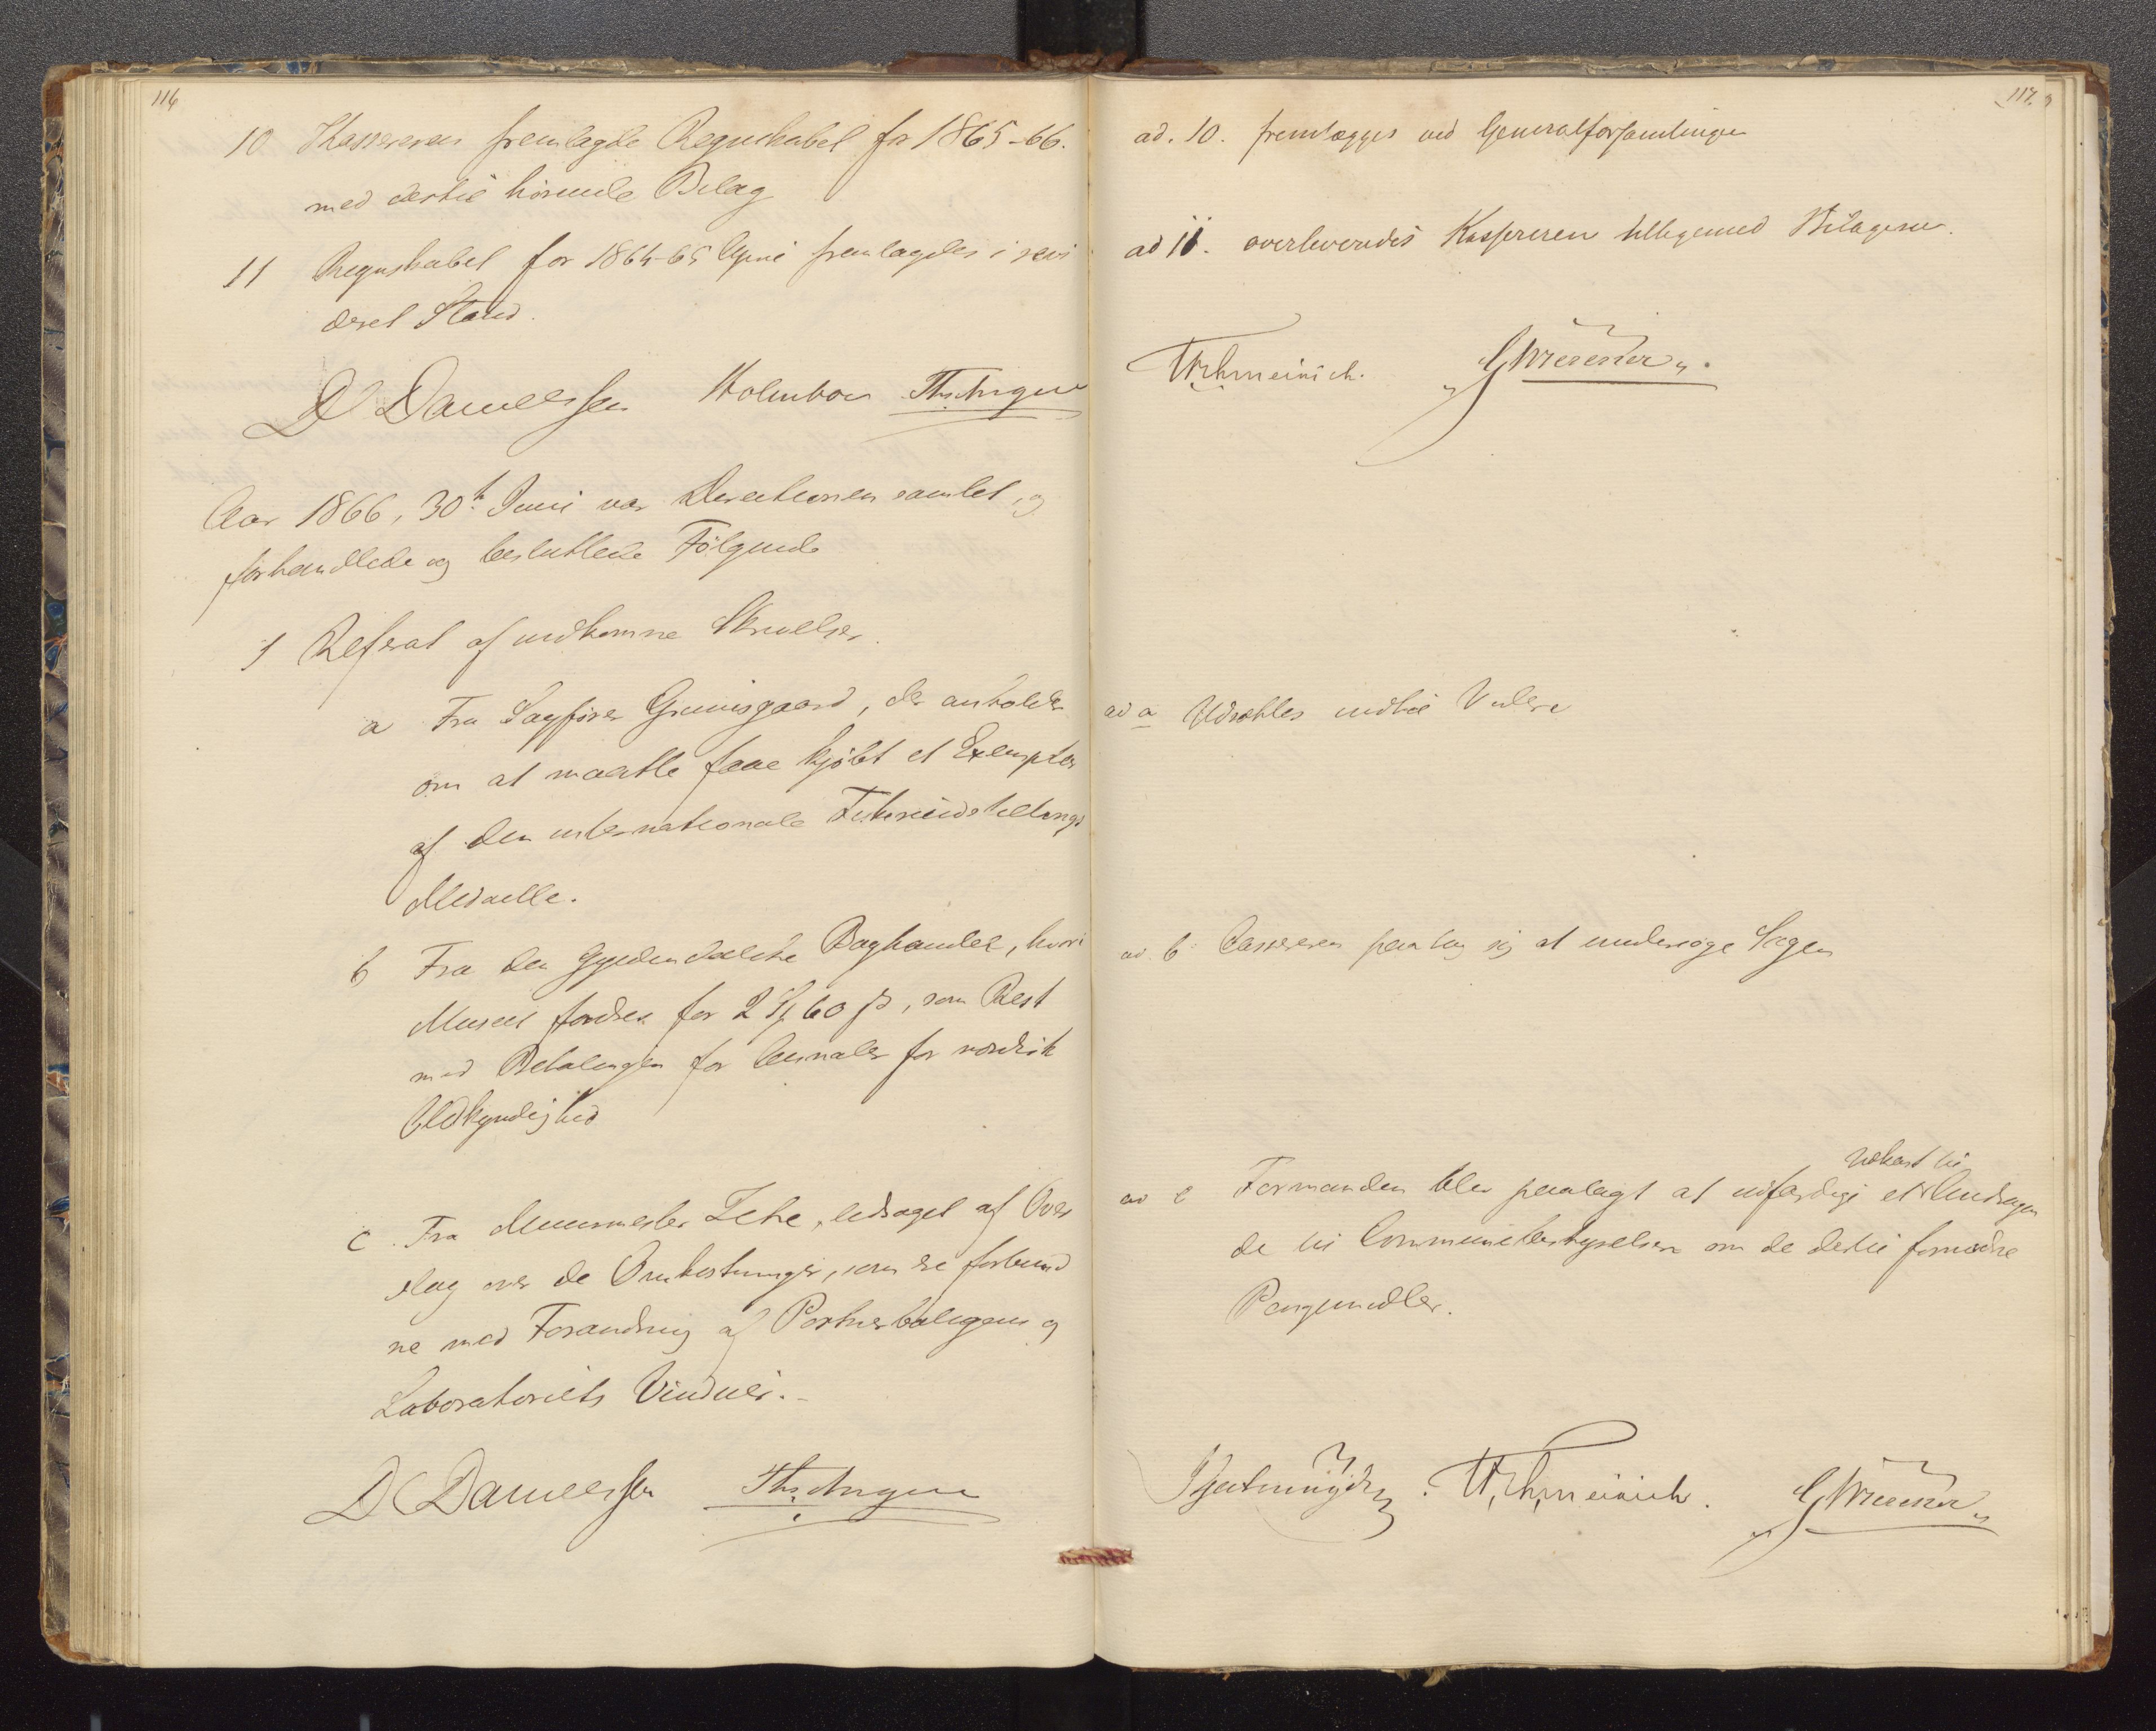 116
10 Kassereren fremlagde Regnskabet for 1865-66.
med dertil hörende Bilag
11 Regnskabet for 1864-65 fremlagdes i revi
deret Stand.
D C Danielssen Holmboe
Aar 1866, 30t Juni var Directionen samlet, og
forhandlede og besluttede Fölgende
1 Referat af indkomne Skrivelser.
a Fra Sagförer Grimsgaard, der anholder
om at maatte faae kjöbt et Exemplar
af den internationale Fiskeriudstillings
Medaille.
b Fra den Gyldendalske Boghandel, hvori
Museet fordres for 2 Sp 60 s, som Rest
med Betalingen for Annaler for nordisk
Oldkyndighed
c. Fra Muurmester Zehe, ledsaget af Over
slag over de Omkostninger, som ere forbund
ne med Forandring af Portnerboligens og
Laboratoriets Vinduer.-
D C Danielssen
117.
ad. 10. fremlægges ved Generalforsamlingen
ad 11. overleveredes Kassereren tilligemed Bilagene.
ad a Udsættes indtil Videre
ad b Cassereren paatog sig at undersöge Sagen
udkast til
ad c Formanden blev paalagt at udfærdige et Andragen
de til Communebestyrelsen om de dertil fornödne
Pengemidler.